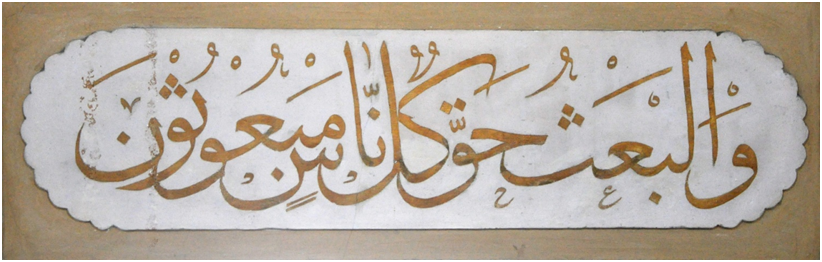 والبعث حق كل ناس مبعوثون